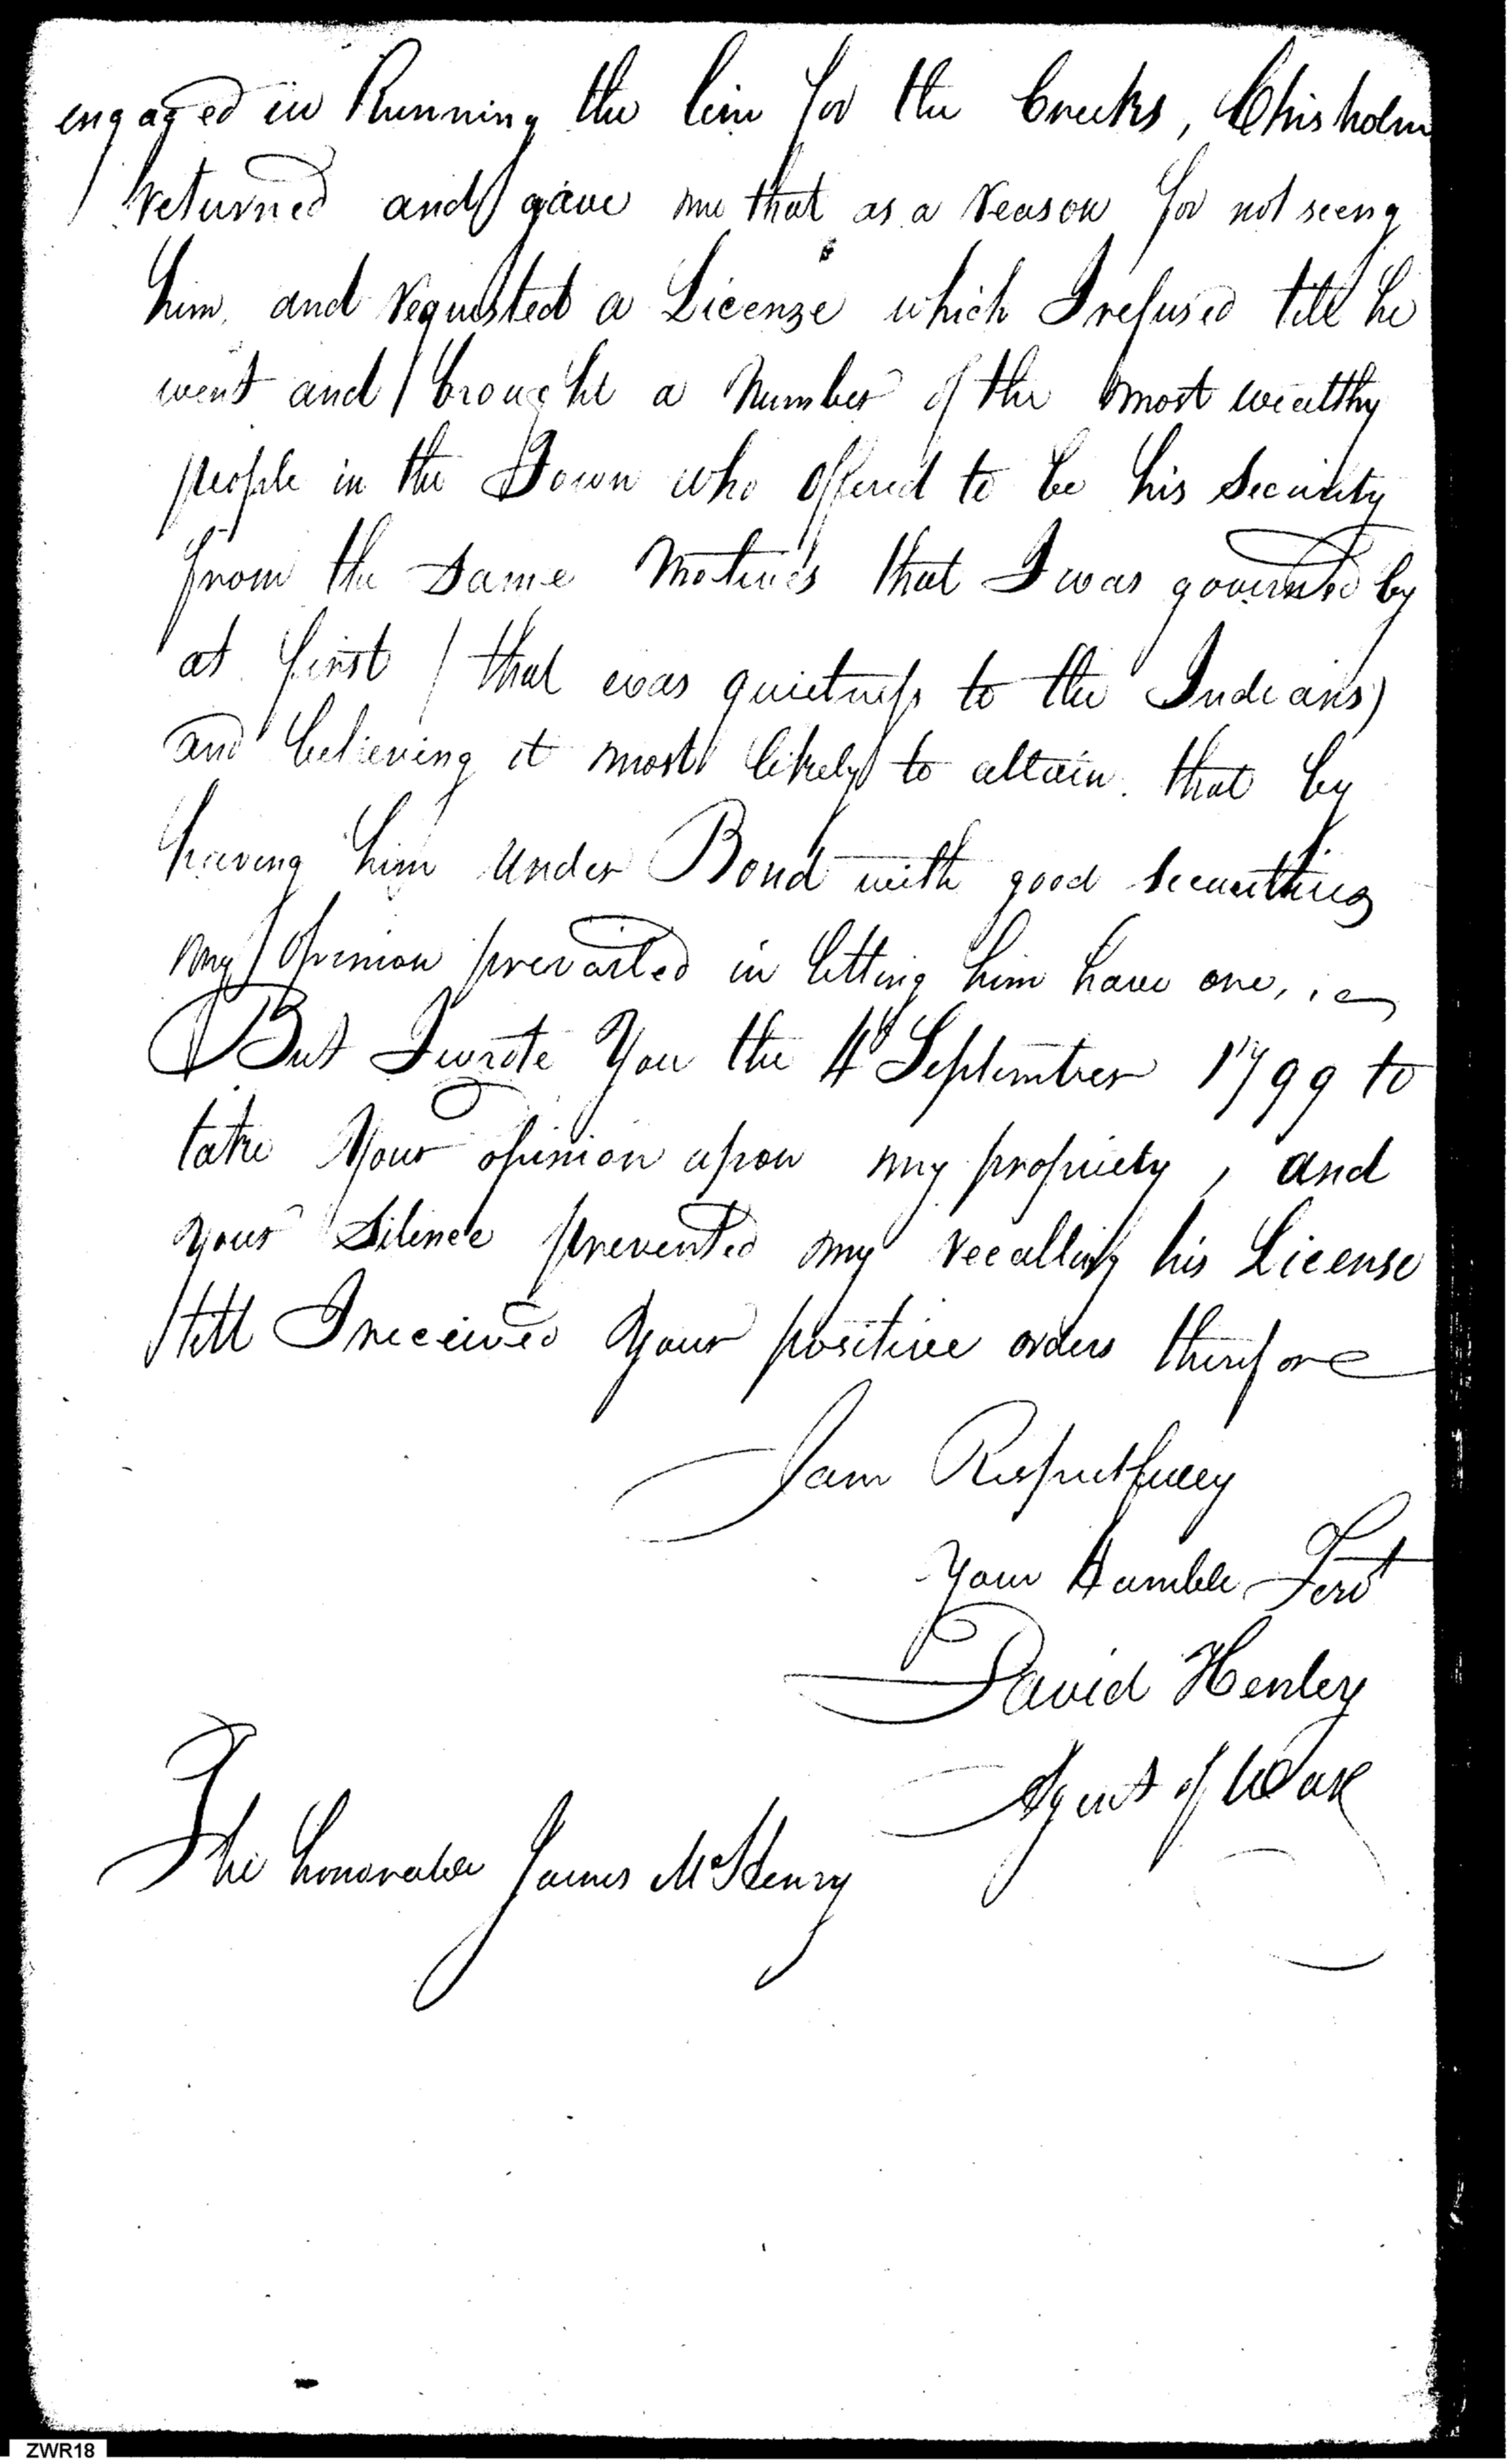 engaged in Running the line for the Creeks, Chisholm
returned and gave me that as a reason for not seeng
him, and requested a License which I refused till he
went and brought a number of the most wealthy
people in the Town who offered to be his Security
from the same motives that I was governed by
at first (that was quietness to the Indians)
and believing it most likely to attain that by
having him under Bond with good securities
my opinion prevailed in letting him have one,
But I wrote You the 4th September 1799 to
take Your opinion upon my propriety, and
your Silence prevented my recalling his License
till I received Your positive orders therefore
I am Respectfully
Your Humble Servt
David Henley
Agent of War
The honorable James McHenry
ZWR18